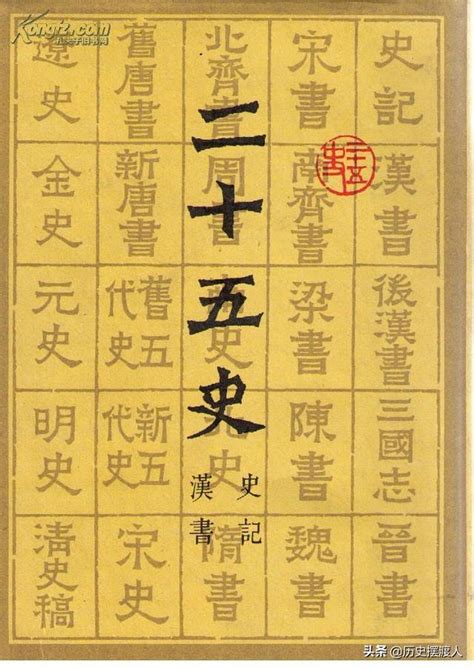 二十五史
史記
漢書
史記
漢書
後漢書
三國志
晉書
宋書
南齊書
梁書
陳書
魏書
北齊書
周書
南史
北史
隋書
舊唐書
新唐書
舊五代史
新五代史
宋史
遼史
金史
元史
明史
清史稿
二十五史
Kongfz.com
孔夫子旧书网
头条 @历史摆渡人